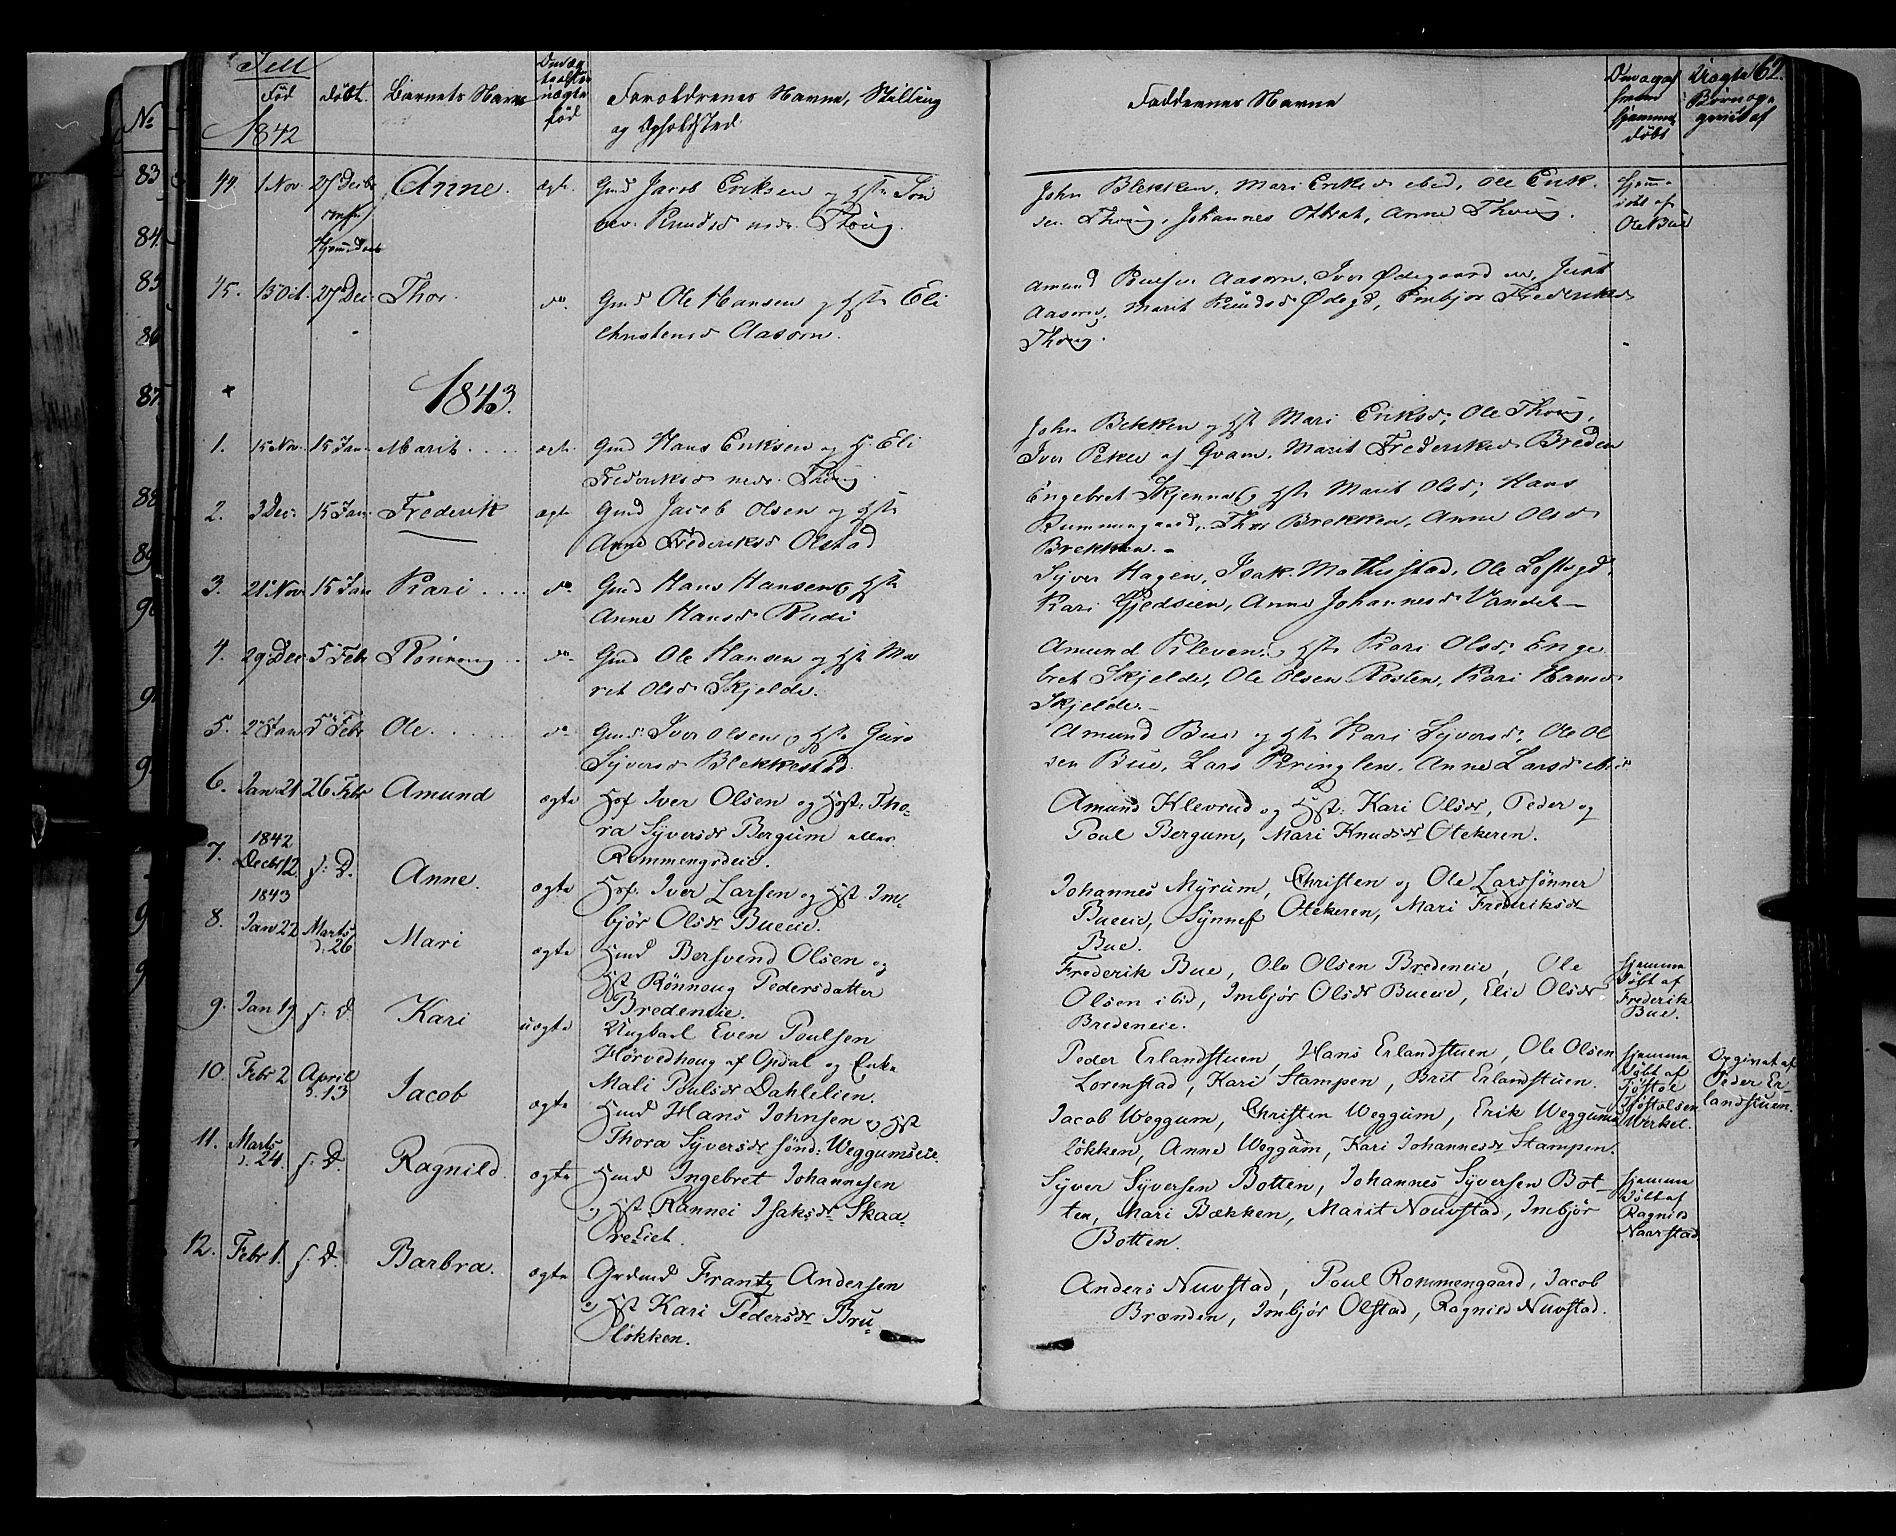 62.
No
Fød
Døbt.
Barnets Navn
uægte
fød
Forældrenes Navne, Stilling
og Opholdsted
Faddernes Navne
hjemme
døbt
Uægte
Børn og
1842
83
84
85
86
87
88
89
90
44. 1 Nov. 27 Decbr Anne. ægt. Gmd Jacob Eriksen og Hst
Knudsd nedr. Thoug.
John Blekken, Mari Eriksd ibid, Ole Erik
sen Thoug, Johannes Anne Thoug.
hjem-
døbt af
Ole Bue
45. 15 Oct. 27 Dec. Thor. do. Gmd Ole Hansen og Hst Eli
Christensd Aasørn.
Amund Aasørn, Iver Ødegaard
Aasørn, Marit Knudsd Ødegd, Embjør Frederiksd
Thoug.
1843.
1. 15 Nov. 15 Jan. Marit ægt. Gmd Hans Eriksen og H. Eli
Frederiksd nedr. Thoug.
John Blekken og Hst Mari Eriksd, Ole Thoug,
Iver af Qvam, Marit Frederiksd Breden
2. 3 Dec. 15 Jan. Frederik ægt Gmd Jacob Olsen og Hst
Anne Frederiksd Olstad
Engebret Skjenna og Hst Marit Olsd, Hans
Rommengaard, Thor Brekken, Anne Olsd
Brekken.
3. 21 Nov. 15 Jan Kari do. Gmd Hans Hansen og Hst
Anne Hansd Rudi
Syver Hagen, Isak Mathisstad, Ole Loftsgd,
Kari Gjedsien, Anne Johannesd
4. 29 Dec. 5 Febr Rønnoug do. Gmd Ole Hansen og Hst Ma
rit Olsd Skjelde.
Amund Kleven og Hst Kari Olsd, Enge
bret Skjelde, Ole Olsen Rosten, Kari Hansd
Skjelde.
5. 2 Jan 5 Febr Ole. do Gmd Iver Olsen og Hst Guro
Syversd Blekkestad.
Amund Bue og Hst Kari Syversd, Ole Ol
sen Bue, Lars Kringlen, Anne Larsd ibid
6. Jan 21 26 Febr Amund ægte Hsf Iver Olsen og Hst: Tho-
ra Syversdr Bergum eller
Rommengrdeie.
Amund Klevrud og Hst: Kari Olsdr, Peder og
Poul Bergum, Mari Knudsdr Otekeren.
7. 1842
Decbr 12. s: D. Anne. ægte Hsf. Iver Larsen og Hst. Im-
bjør Olsdr Bueeie.
Johannes Myrum, Christen og Ole Larssønner
Bueeie, Synnef Otekeren, Mari Frederiksdr
Bue.
1843
8. Jan 22 Marts
d. 26 Mari ægte Hmd Bersvend Olsen og
Hst Rønnoug Pedersdatter
Bredeneie.
Frederik Bue, Ole Olsen Bredeneie, Ole
Olsen ibid, Imbjør Olsdr Bueeie, Elie Olsdr
Bredeneie.
hjemme
døbt af
Frederik
Bue.
9. Jan 19 s: D. Kari uægte Ungkarl Even Poulsen
Hørvedhoug af Opdal og Enke
Mali Poulsdr Dahlelien.
Peder Erlandstuen, Hans Erlandstuen, Ole Olsen
Lorenstad, Kari Stampen, Brit Erlandstuen.
hjemme
døbt af
Tjøstol
Tjøstolsen
Werkel.
Opgivet af
Peder Er
landstuen.
10. Febr 2 April
d. 13 Jacob ægte Hmd Hans Johnsen og Hst
Thora Syversdr sønd: Weggumseie.
Jacob Weggum, Christen Weggum, Erik Weggums
løkken, Anne Weggum, Kari Johannesdr Stampen.
11. Marts
d. 24. s. D. Ragnild. ægte Hmd Ingebret Johannesen
og Hst Rannei Isaksdr Skaa-
reeiet.
Syver Syversen Botten, Johannes Syversen Bot-
ten, Mari Bækken, Marit Nouvstad, Imbjør
Botten.
hjemme
døbt af
Ragnild
Naarstad
12. Febr 1. s. D. Barbra. ægte Grdmd Frantz Andersen
og Hst Kari Pedersdr Bru-
løkken.
Anders Nuvstad, Poul Rommengaard, Jacob
Brænden, Imbjør Olstad, Ragnild Nuvstad.